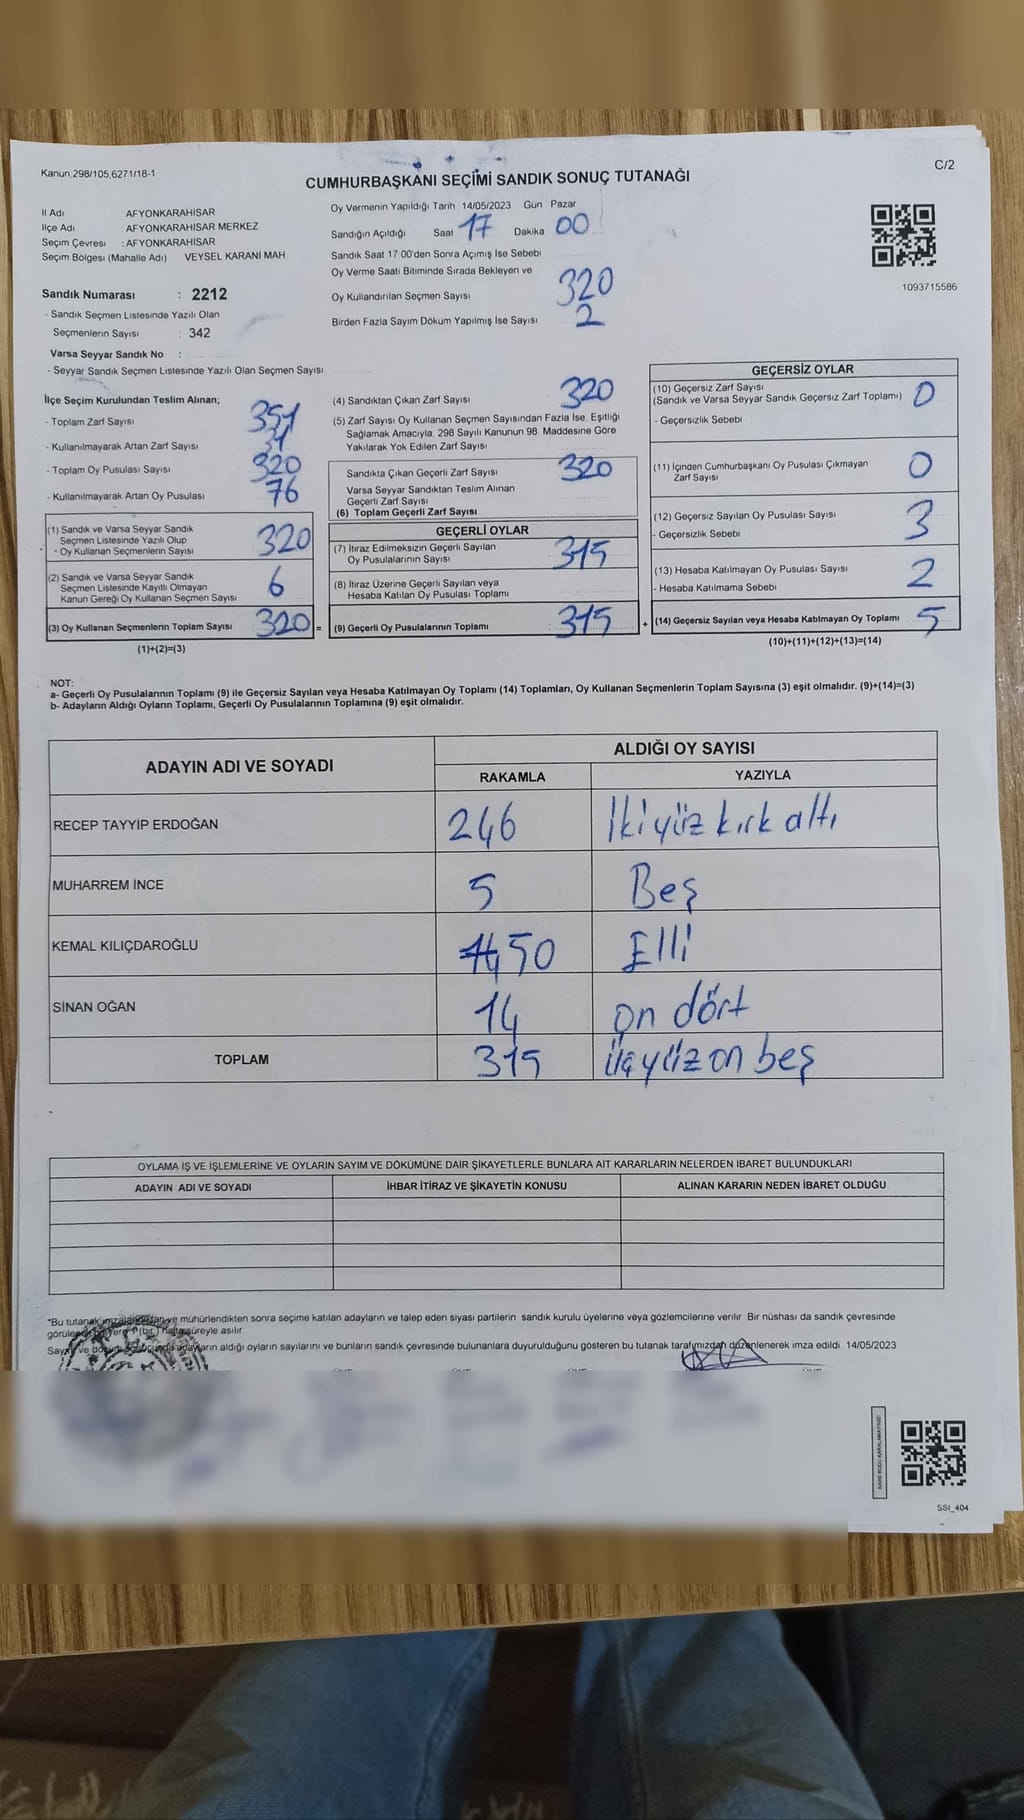 Kanun,298/105,6271/18-1
C/2
CUMHURBAŞKANI SEÇİMİ SANDIK SONUÇ TUTANAĞI
İl Adı AFYONKARAHİSAR
İlçe Adı AFYONKARAHİSAR MERKEZ
Seçim Çevresi : AFYONKARAHİSAR
Seçim Bölgesi (Mahalle Adı) VEYSEL KARANİ MAH
Sandık Numarası : 2212
- Sandık Seçmen Listesinde Yazılı Olan
Seçmenlerin Sayısı : 342
Varsa Seyyar Sandık No :
- Seyyar Sandık Seçmen Listesinde Yazılı Olan Seçmen Sayısı
Oy Vermenin Yapıldığı Tarih 14/05/2023 Gün Pazar
Sandığın Açıldığı Saat 17 Dakika 00
Sandık Saat 17 00'den Sonra Açımış İse Sebebi
Oy Verme Saati Bitiminde Sırada Bekleyen ve
Oy Kullandırılan Seçmen Sayısı 320
Birden Fazla Sayım Döküm Yapılmış İse Sayısı 2
1093715586
İlçe Seçim Kurulundan Teslim Alınan;
- Toplam Zarf Sayısı 351
- Kullanılmayarak Artan Zarf Sayısı
- Toplam Oy Pusulası Sayısı 320
- Kullanılmayarak Artan Oy Pusulası 76
(1) Sandık ve Varsa Seyyar Sandık
Seçmen Listesinde Yazılı Olup
- Oy Kullanan Seçmenlerin Sayısı 320
(2) Sandık ve Varsa Seyyar Sandık
Seçmen Listesinde Kayıtlı Olmayan
Kanun Gereği Oy Kullanan Seçmen Sayısı 6
(3) Oy Kullanan Seçmenlerin Toplam Sayısı 320 =
(1)+(2)=(3)
(4) Sandıktan Çıkan Zarf Sayısı 320
(5) Zarf Sayısı Oy Kullanan Seçmen Sayısından Fazla İse, Eşitliği
Sağlamak Amacıyla, 298 Sayılı Kanunun 98. Maddesine Göre
Yakılarak Yok Edilen Zarf Sayısı
Sandıkta Çıkan Geçerli Zarf Sayısı 320
Varsa Seyyar Sandıktan Teslim Alınan
Geçerli Zarf Sayısı
(6) Toplam Geçerli Zarf Sayısı
GEÇERLİ OYLAR
(7) İtiraz Edilmeksizin Geçerli Sayılan
Oy Pusulalarının Sayısı 315
(8) İtiraz Üzerine Geçerli Sayılan veya
Hesaba Katılan Oy Pusulası Toplamı
(9) Geçerli Oy Pusulalarının Toplamı 315 +
GEÇERSİZ OYLAR
(10) Geçersiz Zarf Sayısı
(Sandık ve Varsa Seyyar Sandık Geçersiz Zarf Toplamı) 0
- Geçersizlik Sebebi
(11) İçinden Cumhurbaşkanı Oy Pusulası Çıkmayan
Zarf Sayısı 0
(12) Geçersiz Sayılan Oy Pusulası Sayısı 3
- Geçersizlik Sebebi
(13) Hesaba Katılmayan Oy Pusulası Sayısı 2
- Hesaba Katılmama Sebebi
(14) Geçersiz Sayılan veya Hesaba Katılmayan Oy Toplamı 5
(10)+(11)+(12)+(13)=(14)
NOT:
a- Geçerli Oy Pusulalarının Toplamı (9) ile Geçersiz Sayılan veya Hesaba Katılmayan Oy Toplamı (14) Toplamları, Oy Kullanan Seçmenlerin Toplam Sayısına (3) eşit olmalıdır. (9)+(14)=(3)
b- Adayların Aldığı Oyların Toplamı, Geçerli Oy Pusulalarının Toplamına (9) eşit olmalıdır.
ADAYIN ADI VE SOYADI ALDIĞI OY SAYISI
RAKAMLA YAZIYLA
RECEP TAYYİP ERDOĞAN 246 İki yüz kırk altı
MUHARREM İNCE 5 Beş
KEMAL KILIÇDAROĞLU 50 Elli
SİNAN OĞAN 14 on dört
TOPLAM 315 üçyüz on beş
OYLAMA İŞ VE İŞLEMLERİNE VE OYLARIN SAYIM VE DÖKÜMÜNE DAİR ŞİKAYETLERLE BUNLARA AİT KARARLARIN NELERDEN İBARET BULUNDUKLARI
ADAYIN ADI VE SOYADI İHBAR İTİRAZ VE ŞİKAYETİN KONUSU ALINAN KARARIN NEDEN İBARET OLDUĞU
*Bu tutanak imzalandıktan ve mühürlendikten sonra seçime katılan adayların ve talep eden siyasi partilerin sandık kurulu üyelerine veya gözlemcilerine verilir. Bir nüshası da sandık çevresinde
yere (bir) hafta süreyle asılır
Sayım ve adayların aldığı oyların sayılarını ve bunların sandık çevresinde bulunanlara duyurulduğunu gösteren bu tutanak tarafımızdan düzenlenerek imza edildi. 14/05/2023
KARE KODU KARALAMAYINIZ
SSI_404